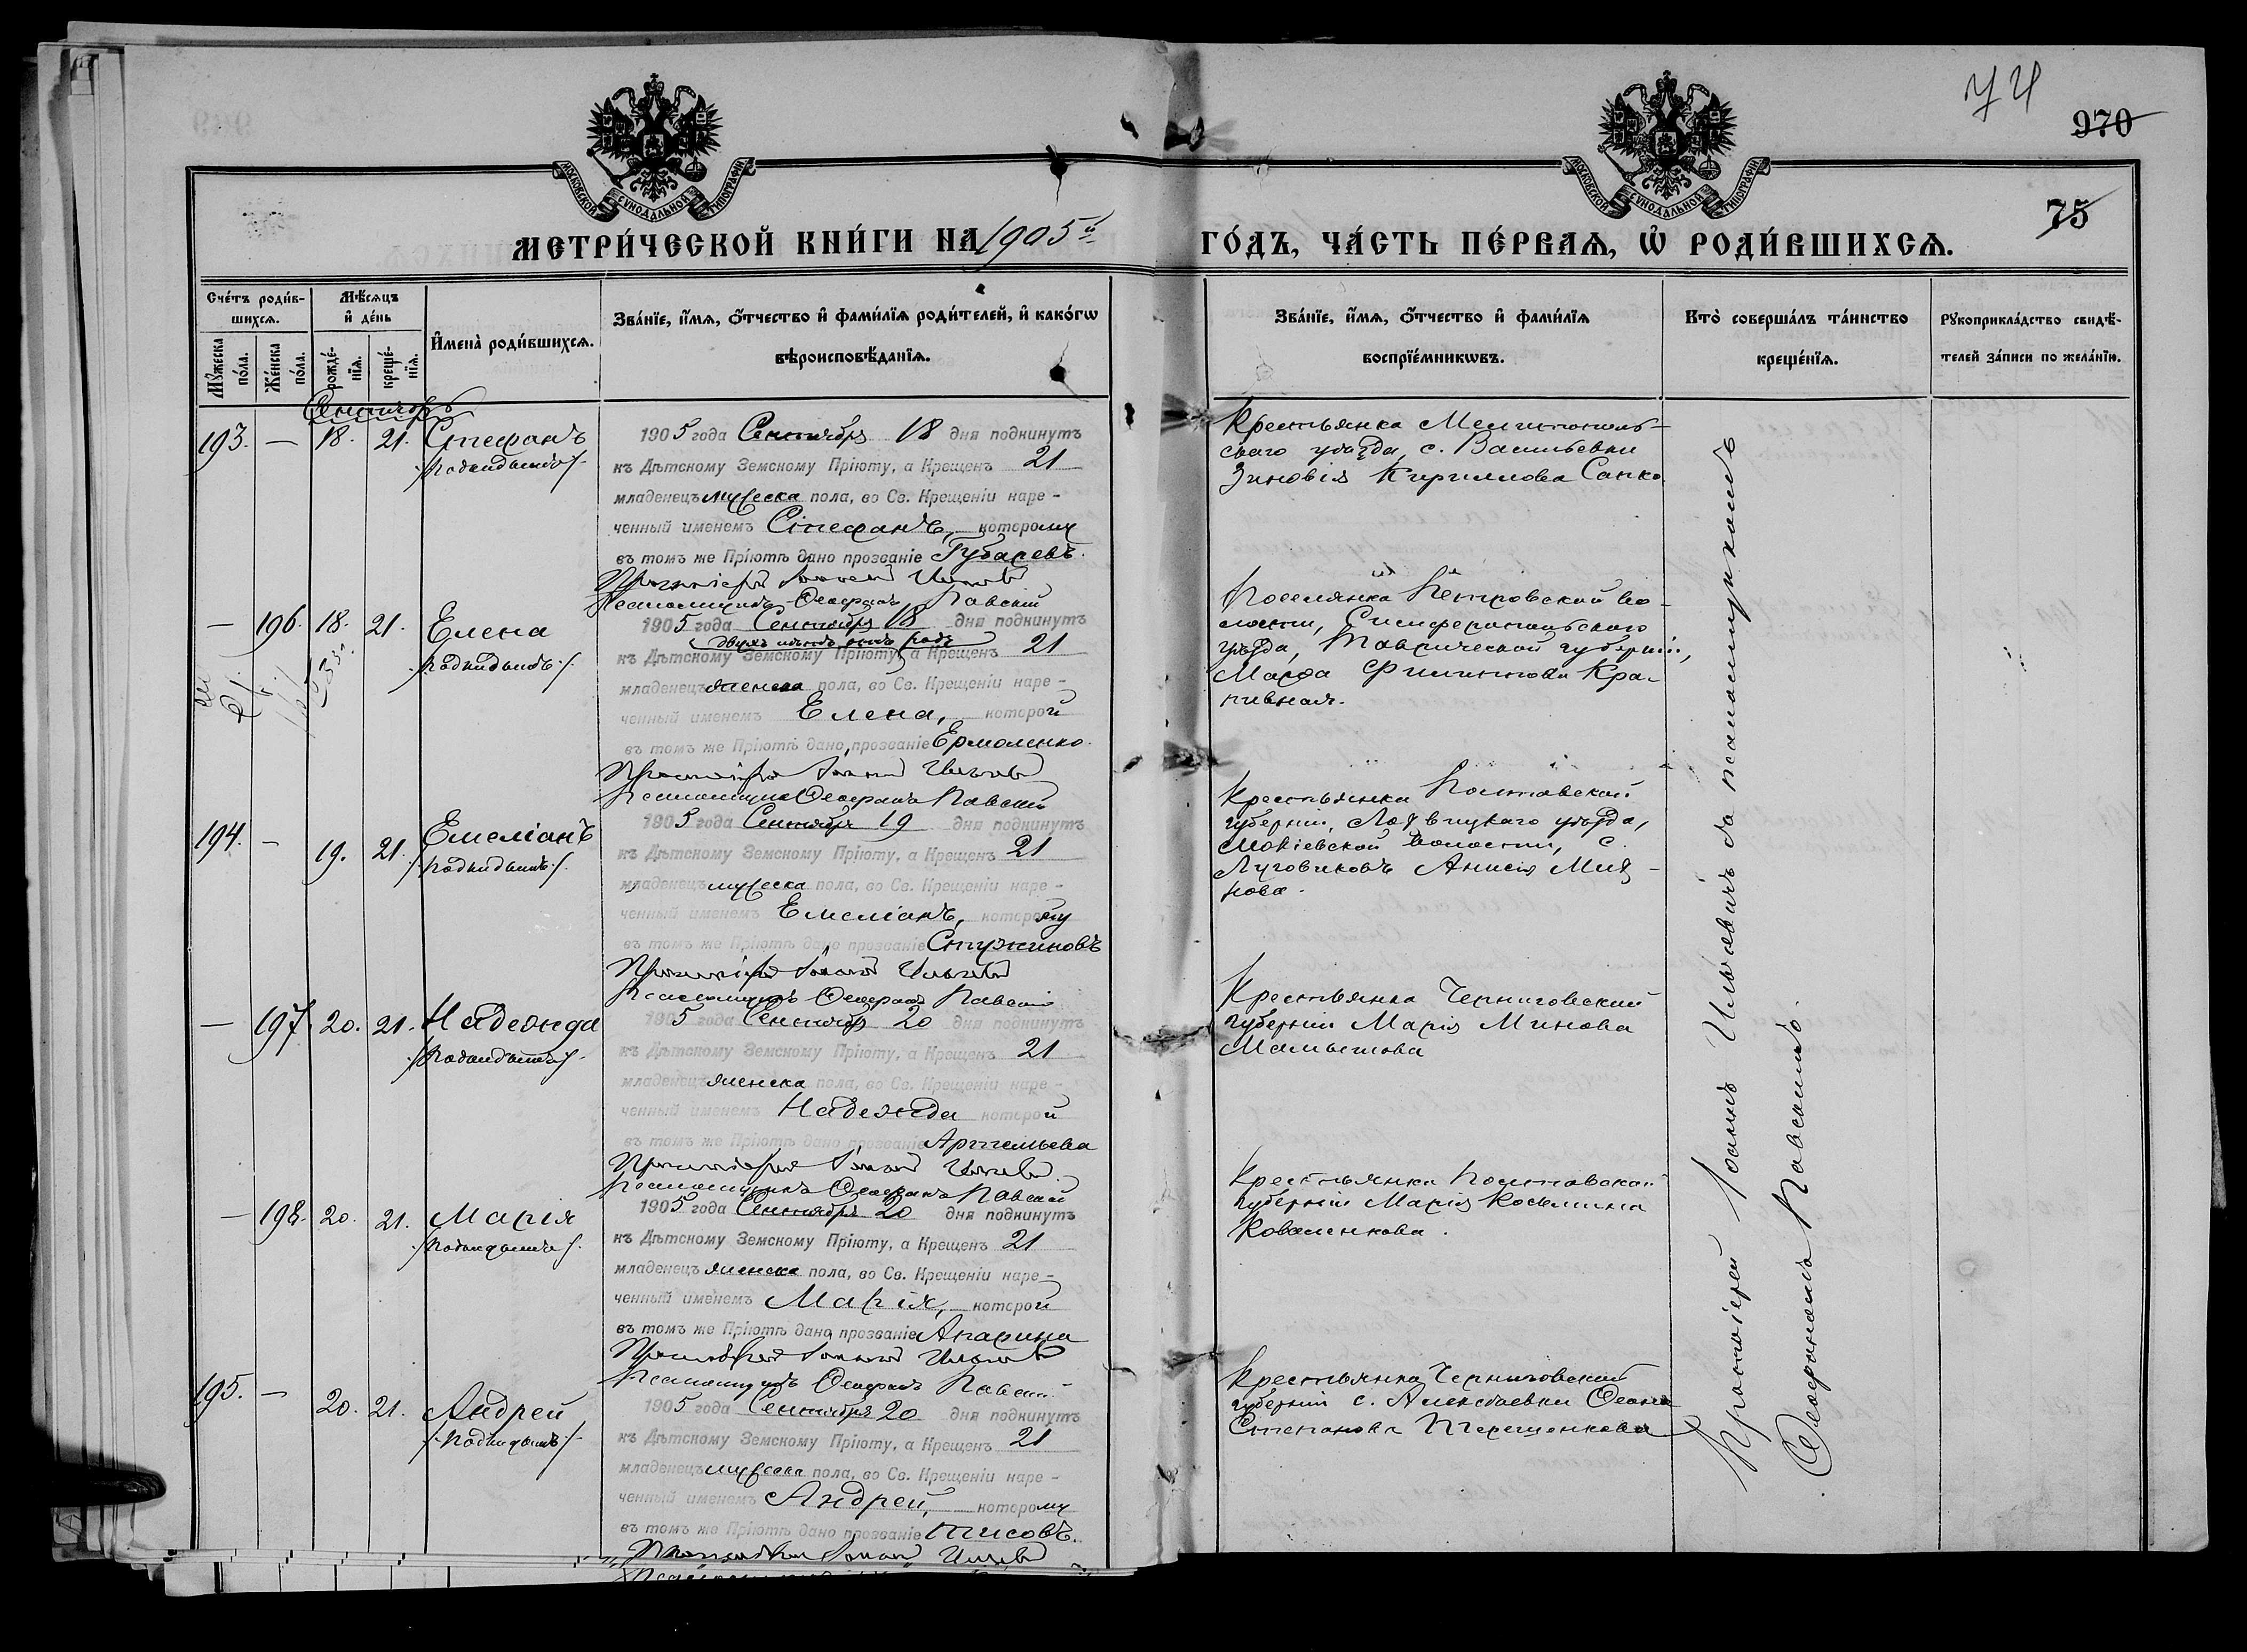 74
970
75
МОСКОВСКОЙ СѴНОДАЛЬНОЙ ТИПОГРАФІИ
МОСКОВСКОЙ СѴНОДАЛЬНОЙ ТИПОГРАФІИ
МЕТРИ́ЧЕСКОЙ КНИ́ГИ НА 1905й
ГО́ДЪ, ЧА́СТЬ ПЕ́РВАѦ, Ѡ҆ РОДИ́ВШИХСѦ.
Сче́тъ роди́в-
шихсѧ.
Мꙋ́жеска по́ла.
Же́нска по́ла.
Мѣ́сѧцъ
и҆ де́нь
рожде́-
нїѧ.
креще́-
нїѧ.
И҆мена̀ роди́вшихсѧ.
Зва́нїе, и҆́мѧ, ѻ҆́тчество и҆ фами́лїѧ роди́телей, и҆ како́гѡ
вѣроисповѣ́данїѧ.
Зва́нїе, и҆́мѧ, ѻ҆́тчество и҆ фами́лїѧ
воспрїе́мникѡвъ.
Кто̀ соверша́лъ та́инство
креще́нїѧ.
Рꙋкоприкла́дство свидѣ́-
телей за́писи по жела́нїю.
Сентябрь
193. — 18. 21. Стефанъ
/подкидышъ/.
1905 года Сентября 18 дня подкинутъ
къ Дѣтскому Земскому Пріюту, а Крещенъ 21
младенецъ мужеска пола, во Св. Крещеніи наре-
ченный именемъ Стефанъ, которому
въ томъ же Пріютѣ дано прозваніе Губаревъ.
Протоіерей Іоаннъ Ильевичъ
Псаломщикъ Ѳеофанъ Павскій
Крестьянка Мелитополь-
скаго уѣзда, с. Васильевки
Зиновія Кириллова Сапко
— 196. 18. 21. Елена
/подкидышъ/.
1905 года Сентября 18 дня подкинутъ
къ Дѣтскому Земскому Пріюту, а Крещенъ 21
младенецъ женска пола, во Св. Крещеніи наре-
ченный именемъ Елена, которой
въ томъ же Пріютѣ дано прозваніе Ермоленко.
Протоіерей Іоаннъ Ильевичъ
Псаломщикъ Ѳеофанъ Павскій
Поселянка Петровской во-
лости, Симферопольскаго
уѣзда, Таврической губерніи,
Марфа Филиппова Кра-
пивная.
194. — 19. 21. Емеліанъ
/подкидышъ/.
1905 года Сентября 19 дня подкинутъ
къ Дѣтскому Земскому Пріюту, а Крещенъ 21
младенецъ мужеска пола, во Св. Крещеніи наре-
ченный именемъ Емеліанъ, которому
въ томъ же Пріютѣ дано прозваніе Стружиновъ
Протоіерей Іоаннъ Ильевичъ
Псаломщикъ Ѳеофанъ Павскій
Крестьянка Полтавской
губерніи, Лохвицкаго уѣзда,
волости, с.
Луговиковъ Анисія
нова.
— 197. 20. 21. Надежда
/подкидышъ/.
1905 года Сентября 20 дня подкинутъ
къ Дѣтскому Земскому Пріюту, а Крещенъ 21
младенецъ женска пола, во Св. Крещеніи наре-
ченный именемъ Надежда которой
въ томъ же Пріютѣ дано прозваніе Артемьева
Протоіерей Іоаннъ Ильевичъ
Псаломщикъ Ѳеофанъ Павскій
Крестьянка Черниговской
губерніи Марія Минова
Мамытова
— 198. 20. 21. Марія
/подкидышъ/.
1905 года Сентября 20 дня подкинутъ
къ Дѣтскому Земскому Пріюту, а Крещенъ 21
младенецъ женска пола, во Св. Крещеніи наре-
ченный именемъ Марія, которой
въ томъ же Пріютѣ дано прозваніе Апарина
Протоіерей Іоаннъ Ильевичъ
Псаломщикъ Ѳеофанъ Павскій
Крестьянка Полтавской
губерніи Марія Косьмина
Коваленкова.
195. — 20. 21. Андрей
/подкидышъ/.
1905 года Сентября 20 дня подкинутъ
къ Дѣтскому Земскому Пріюту, а Крещенъ 21
младенецъ мужеска пола, во Св. Крещеніи наре-
ченный именемъ Андрей, которому
въ томъ же Пріютѣ дано прозваніе Тисовъ.
Протоіерей Іоаннъ Ильевичъ
Крестьянка Черниговской
губерніи с. Алексѣевки Ѳеона
Степанова Терещенкова
Протоіерей Іоаннъ Ильевичъ съ псаломщикомъ
Ѳеофаномъ Павскимъ.